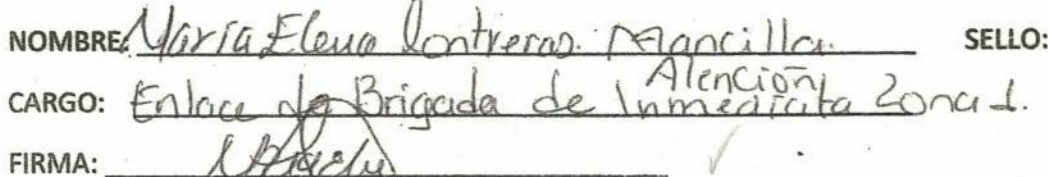 NOMBRE: María Elena Contreras Mancilla. SELLO:
CARGO: Enlace de Brigada de Atención Inmediata Zona 1.
FIRMA: